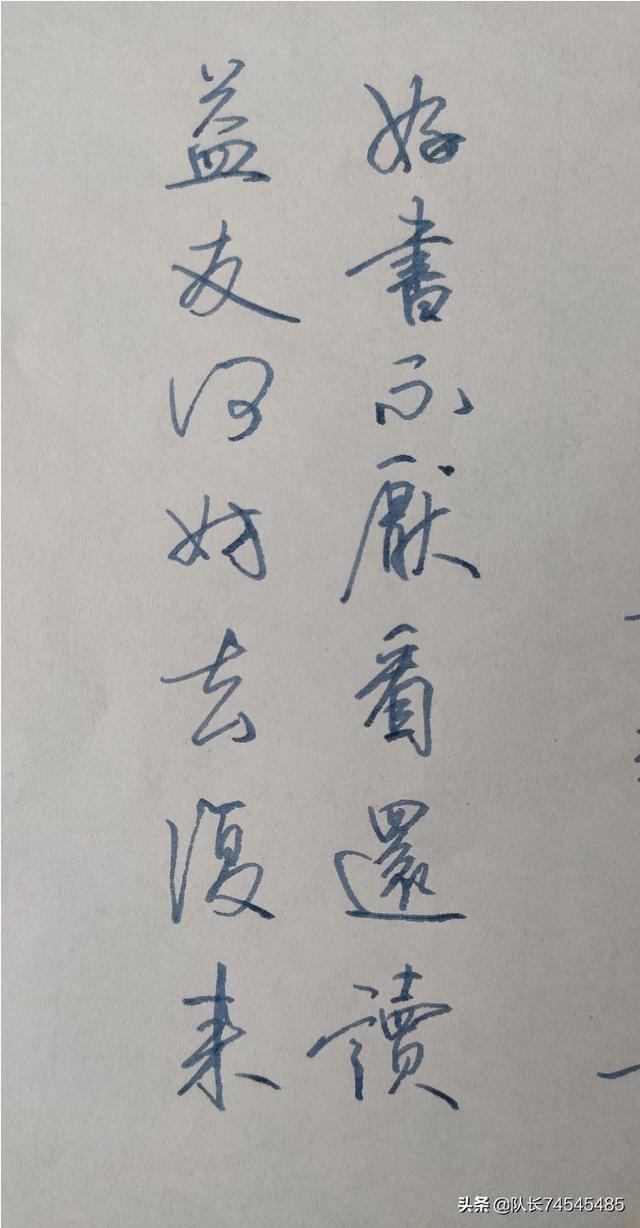 好書不厭看還讀
益友何妨去復来
头条 @队长74545485